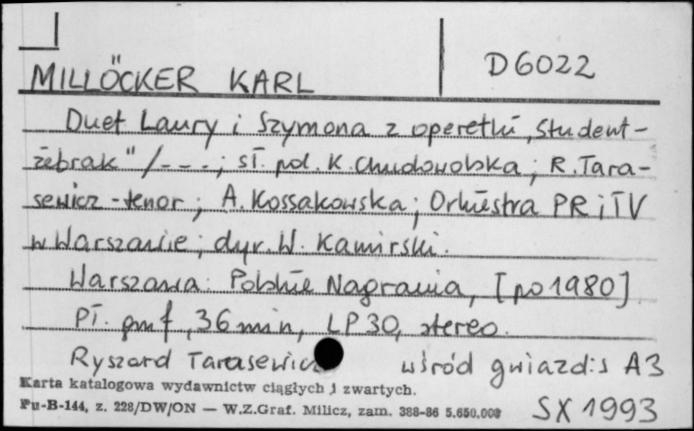 D6022
MILLÖCKER KARL
Duet Laury i Szymona z operetki „Student-
żebrak"/---; sł. pol. K. Chudowolska; R. Tara-
sewicz - tenor; A. Kossakowska; Orkiestra PR i TV
w Warszawie; dyr. W. Kamirski.
Warszawa: Polskie Nagrania, [po 1980]
Pł. gmf, 36 min, LP 30, stereo.
Ryszard Tarasewicz wśród gwiazd: s A3
Karta katalogowa wydawnictw ciągłych i zwartych.
Pu-B-144, z. 228/DW/ON — W.Z.Graf. Milicz, zam. 388-86 5.650.000
SX 1993